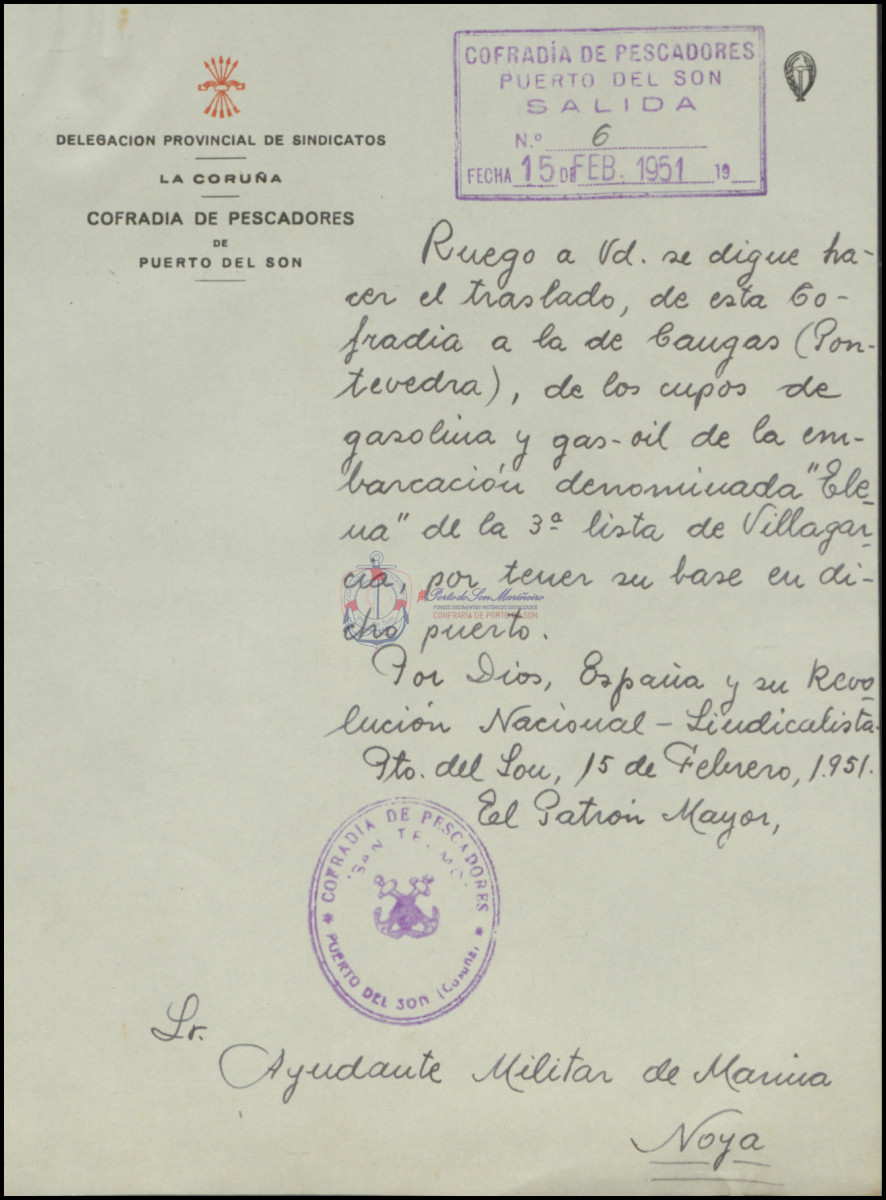 DELEGACION PROVINCIAL DE SINDICATOS
LA CORUÑA
COFRADIA DE PESCADORES
DE
PUERTO DEL SON
COFRADÍA DE PESCADORES
PUERTO DEL SON
SALIDA
N.º 6
FECHA 15 DE FEB. 1951 19
Ruego a Vd. se digne ha-
cer el traslado, de esta Co-
fradia a la de Cangas (Pon-
tevedra), de los cupos de
gasolina y gas-oil de la em-
barcación denominada "Ele
na" de la 3ª lista de Villagar
cia, por tener su base en di-
cho puerto.
Porto do Son Mariñeiro
FONDOS DOCUMENTAIS HISTÓRICOS DIXITALIZADOS
CONFRARÍA DE PORTO DO SON
Por Dios, España y su Revo
lución Nacional-Sindicalista.
Pto. del Son, 15 de Febrero, 1.951.
El Patrón Mayor,
COFRADIA DE PESCADORES
"SAN TELMO"
PUERTO DEL SON (Coruña)
Sr.
Ayudante Militar de Marina
Noya